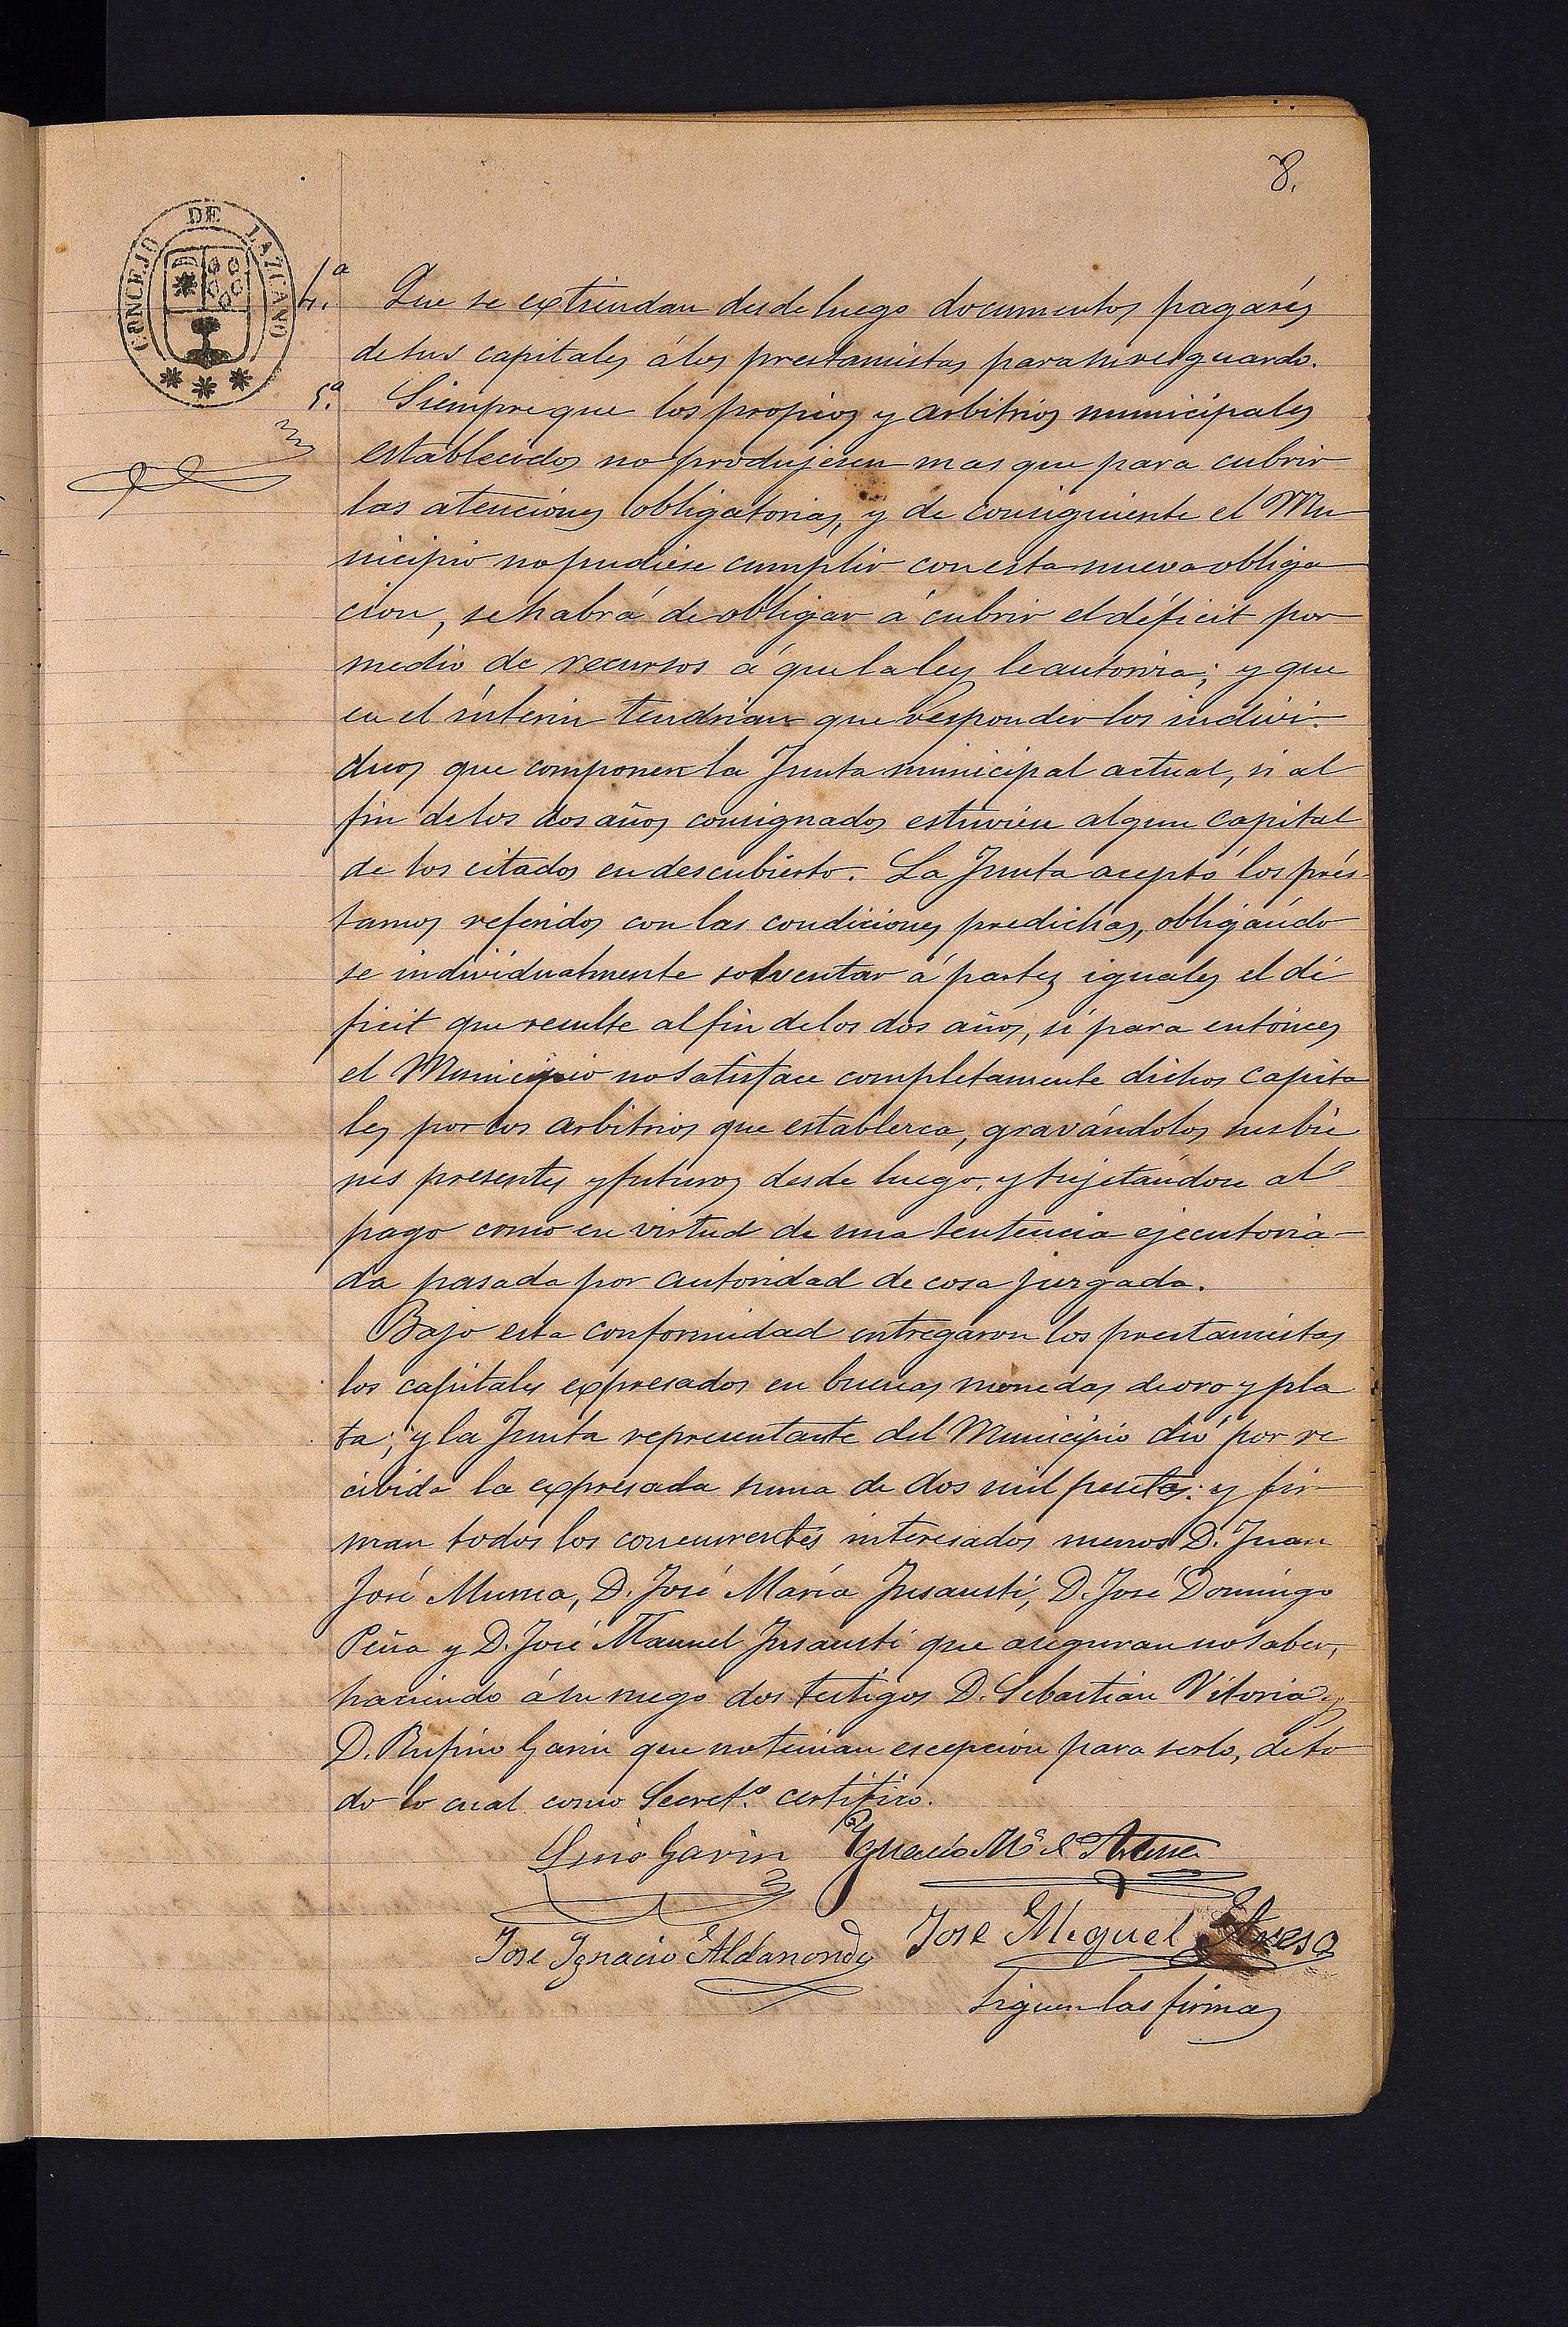 8.
CONCEJO DE LAZCANO
4.ª Que se extiendan desde luego documentos pagarés
de sus capitales á los prestamistas para su resguardo.
5.ª Siempre que los propios y arbitrios municipales
establecidos no produjesen mas que para cubrir
las atenciones obligatorias, y de consiguiente el Mu
nicipio no pudiese cumplir con esta nueva obliga
cion, se habrá de obligar á cubrir el déficit por
medio de recursos á que la ley le autoriza; y que
en el ínterin tendrian que responder los indivi-
duos que componen la Junta municipal actual, si al
fin de los dos años consignados estuviese algun capital
de los citados en descubierto. La Junta aceptó los prés-
tamos referidos con las condiciones predichas, obligándo
se individualmente solventar á partes iguales el dé
ficit que resulte al fin de los dos años, si para entónces
el Municipio no satisface completamente dichos capita
les por los arbitrios que establezca, gravándolos sus bie
nes presentes y futuros desde luego, y sujetándose al
pago como en virtud de una sentencia ejecutoria-
da pasada por autoridad de cosa juzgada.
Bajo esta conformidad entregaron los prestamistas
los capitales expresados en buenas monedas de oro y pla
ta; y la Junta representante del Municipio dió por re
cibida la expresada suma de dos mil pesetas: y fir-
man todos los concurrentes interesados menos D. Juan
José Munoa, D. José María Jusausti, D. José Domingo
Peña y D. José Manuel Jusausti que aseguran no saber,
haciendo á su ruego dos testigos D. Sebastián Vitoria y
D. Rufino Garin que no tenian escepción para serlo, de to
do lo cual como Secret.º certifico.
Lino Garin Ignacio Mª
José Ignacio Aldanondo José Miguel
Siguen las firmas